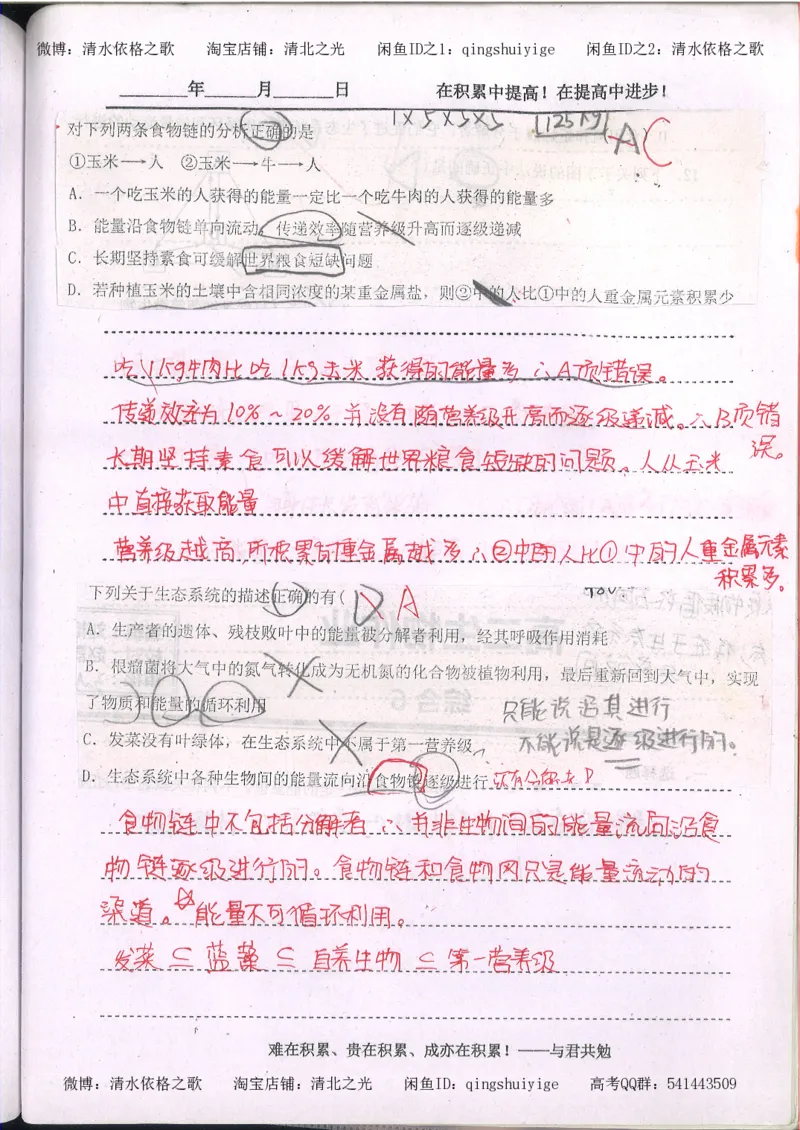 微博：清水依格之歌 淘宝店铺：清北之光 闲鱼ID之1：qingshuiyige 闲鱼ID之2：清水依格之歌
______年______月______日 在积累中提高！在提高中进步！
1×5×5×5 125kg
对下列两条食物链的分析正确的是 A C
①玉米→人 ②玉米→牛→人
A．一个吃玉米的人获得的能量一定比一个吃牛肉的人获得的能量多
B．能量沿食物链单向流动，传递效率随营养级升高而逐级递减
C．长期坚持素食可缓解世界粮食短缺问题
D．若种植玉米的土壤中含相同浓度的某重金属盐，则②中的人比①中的人重金属元素积累少
吃1kg牛肉比吃1kg玉米获得的能量多 ∴A项错误。
传递效率为10%～20% 并没有随营养级升高而逐级递减。∴B项错
误。
长期坚持素食可以缓解世界粮食短缺的问题。人从玉米
中直接获取能量
营养级越高，所积累的重金属越多 ∴②中的人比①中的人重金属元素
积累多。
下列关于生态系统的描述正确的有( D A
A．生产者的遗体、残枝败叶中的能量被分解者利用，经其呼吸作用消耗
B．根瘤菌将大气中的氮气转化成为无机氮的化合物被植物利用，最后重新回到大气中，实现
了物质和能量的循环利用
只能说沿其进行
C．发菜没有叶绿体，在生态系统中不属于第一营养级
不能说是逐级进行的。
D．生态系统中各种生物间的能量流向沿食物链逐级进行
还有分解者
食物链中不包括分解者 ∴并非生物间的能量流向沿食
物链逐级进行的。食物链和食物网只是能量流动的
渠道。☆能量不可循环利用。
发菜⊆蓝藻⊆自养生物⊆第一营养级
难在积累、贵在积累、成亦在积累！——与君共勉
微博：清水依格之歌 淘宝店铺：清北之光 闲鱼ID：qingshuiyige 高考QQ群：541443509